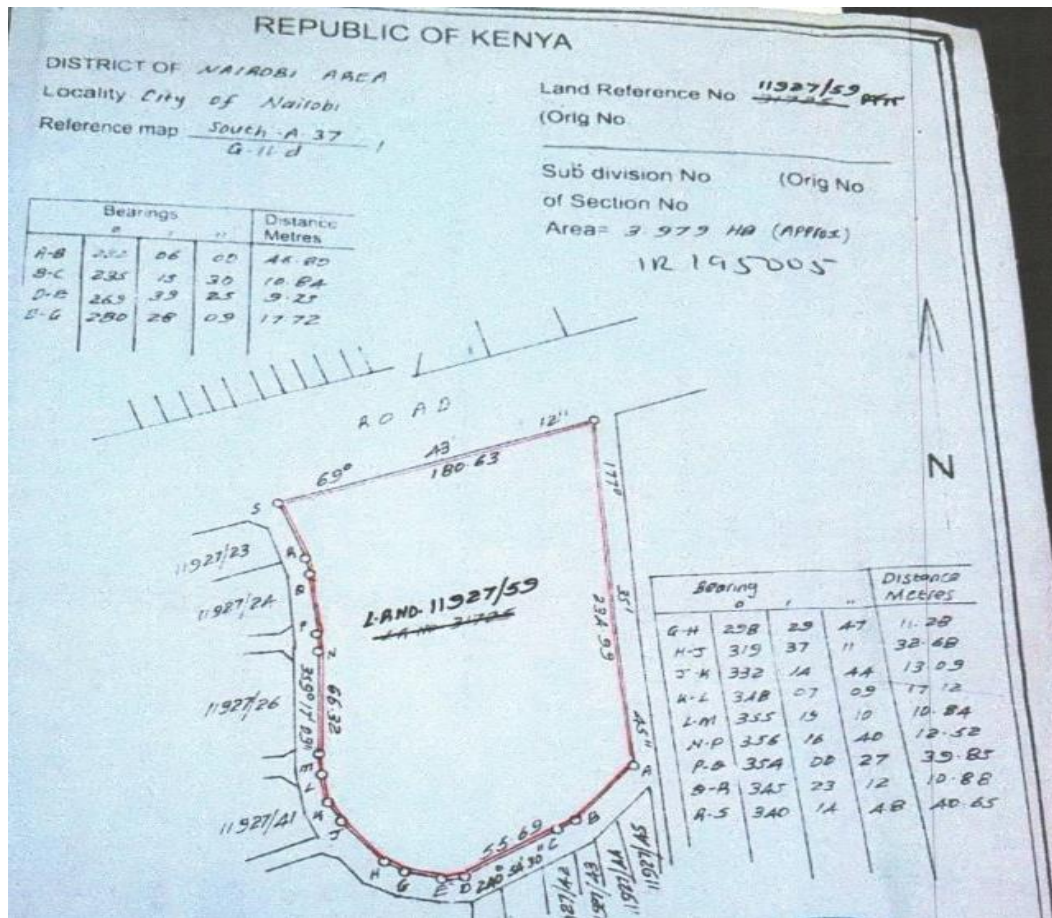 REPUBLIC OF KENYA
DISTRICT OF NAIROBI AREA
Locality City of Nairobi
Reference map South A 37
G 11 d
Land Reference No 11927/59
(Orig No
Sub division No (Orig No
of Section No
Area= 3.979 HA (APPROX)
IR 195005
Bearings Distance
° ' " Metres
A-B 06 00
B-C 235 15 30 10.84
D-E 269 39 25 9.25
280 28 09 17.72
ROAD
69° 43' 12"
180.63
S
R
Q
P
N
66.32
177° 35' 45"
234.99
A
B
C
55.69
240° 56' 30"
D
E
G
H
J
K
L
LAND. 11927/59
11927/23
11927/24
11927/26
11927/41
N
Bearing Distance
° ' " Metres
G-H 298 29 47 11.28
H-J 319 37 11 32.68
J-K 332 14 44 13.09
K-L 348 07 09 17.12
L-M 355 19 10 10.84
N-P 356 16 40 12.52
P-Q 354 00 27 39.85
Q-R 345 23 12 10.88
R-S 340 14 48 40.65